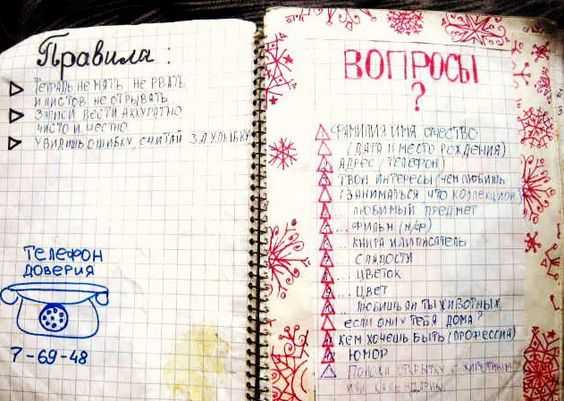 Правила:
Тетрадь не мять, не рвать
и листов не отрывать
Записи вести аккуратно
чисто и честно
Увидишь ошибку, считай за улыбку
Телефон
доверия
7-69-48
ВОПРОСЫ
?
Фамилия имя отчество
(дата и место рождения)
Адрес (телефон)
Твои интересы (чем любишь
заниматься что коллекцион
... любимый предмет
... фильм (м/ф)
... книга или писатель
... сладости
... цветок
... цвет
... любишь ли ты животных
если они у тебя дома?
Кем хочешь быть (профессия)
Юмор
открытку с